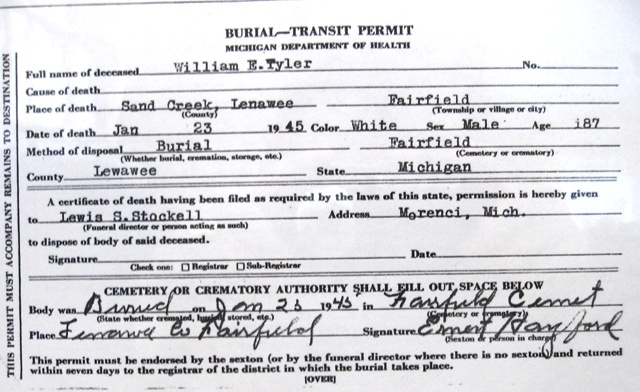 BURIAL—TRANSIT PERMIT
MICHIGAN DEPARTMENT OF HEALTH
Full name of deceased William E.Tyler No.
Cause of death
Place of death Sand Creek, Lenawee Fairfield
(County) (Township or village or city)
Date of death Jan 23 1945 Color White Sex Male Age i87
Method of disposal Burial Fairfield
(Whether burial, cremation, storage, etc.) (Cemetery or crematory)
County Lewawee State Michigan
A certificate of death having been filed as required by the laws of this state, permission is hereby given
to Lewis S.Stockell Address Morenci, Mich.
(Funeral director or person acting as such)
to dispose of body of said deceased.
Signature Date
Check one: ☐ Registrar ☐ Sub-Registrar
CEMETERY OR CREMATORY AUTHORITY SHALL FILL OUT SPACE BELOW
Body was Buried on Jan 25 1945 in Fairfield Cemet
(State whether cremated, buried, stored, etc.) (Cemetery or crematory)
Place Lenawe Co Fairfield Signature Ernest
(Sexton or person in charge)
This permit must be endorsed by the sexton (or by the funeral director where there is no sexton) and returned
within seven days to the registrar of the district in which the burial takes place.
[OVER]
THIS PERMIT MUST ACCOMPANY REMAINS TO DESTINATION